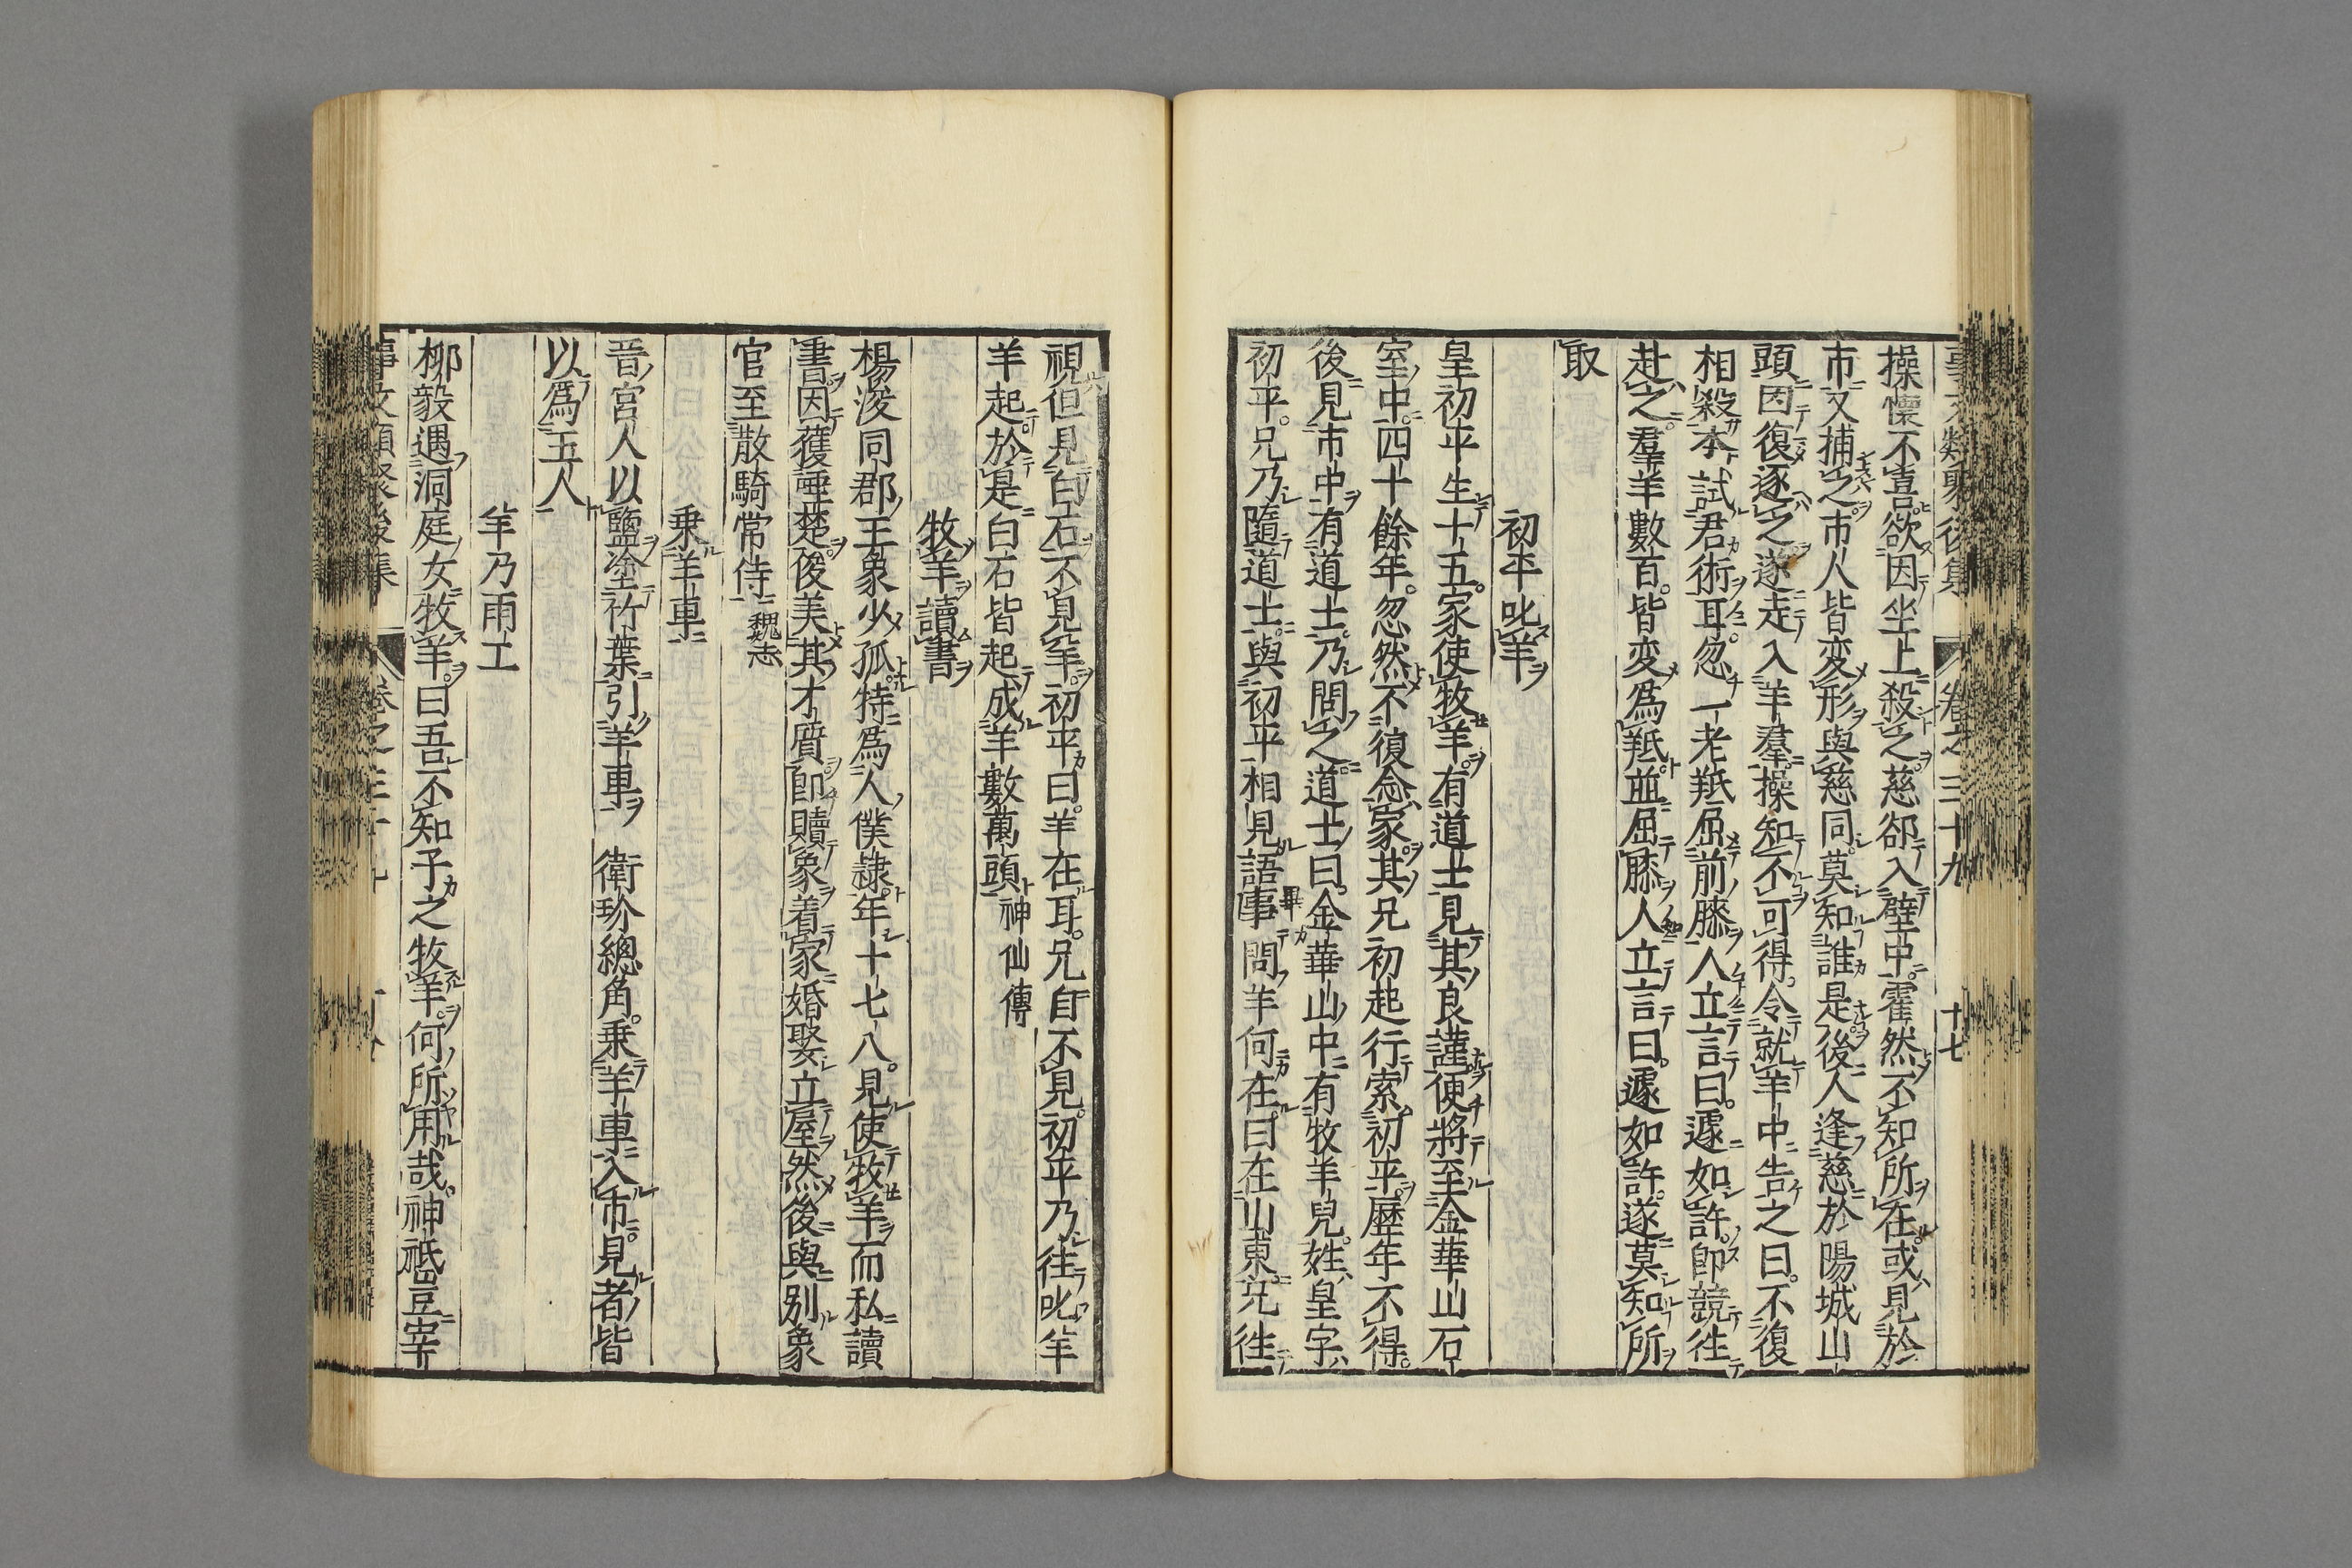 操懷不喜欲因坐上殺之慈卻入壁中霍然不知所在或見於
市又捕之市人皆変形與慈同莫知誰是後人逢慈於陽城山
頭因復逐之遂走入羊羣操知不可得令就羊中告之曰不復
相殺本試君術耳忽一老羝屈前膝人立言曰遽如許即競徃
赴之羣羊數百皆変爲羝並屈膝人立言曰遽如許遂莫知所
取
初平叱羊
皇初平生十五家使牧羊有道士見其良謹便將至金華山石
室中四十餘年忽然不復念家其兄初起行索初平歷年不得
後見市中有道士乃問之道士曰金華山中有牧羊兒姓皇字
初平兄乃隨道士與初平相見語事畢問羊何在曰在山東兄徃
視但見白石不見羊初平曰羊在耳兄自不見初平乃徃叱羊
羊起於是白石皆起成羊數萬頭神仙傳
牧羊讀書
楊浚同郡王象少孤特爲人僕隷年十七八見使牧羊而私讀
書因獲箠楚俊美其才質即贖象着家娉娶立屋然後與別象
官至散騎常侍魏志
乗羊車
晋宮人以鹽塗竹葉引羊車 衛玠總角乗羊車入市見者皆
以爲玉人
羊乃雨工
柳毅遇洞庭女牧羊曰吾不知子之牧羊何所用哉神祇豈宰